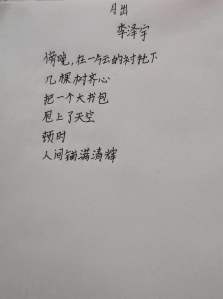 月出
李泽宇
傍晚,在一片云的衬托下
几棵树齐心
把一个大书包
甩上了天空
顿时
人间铺满清辉